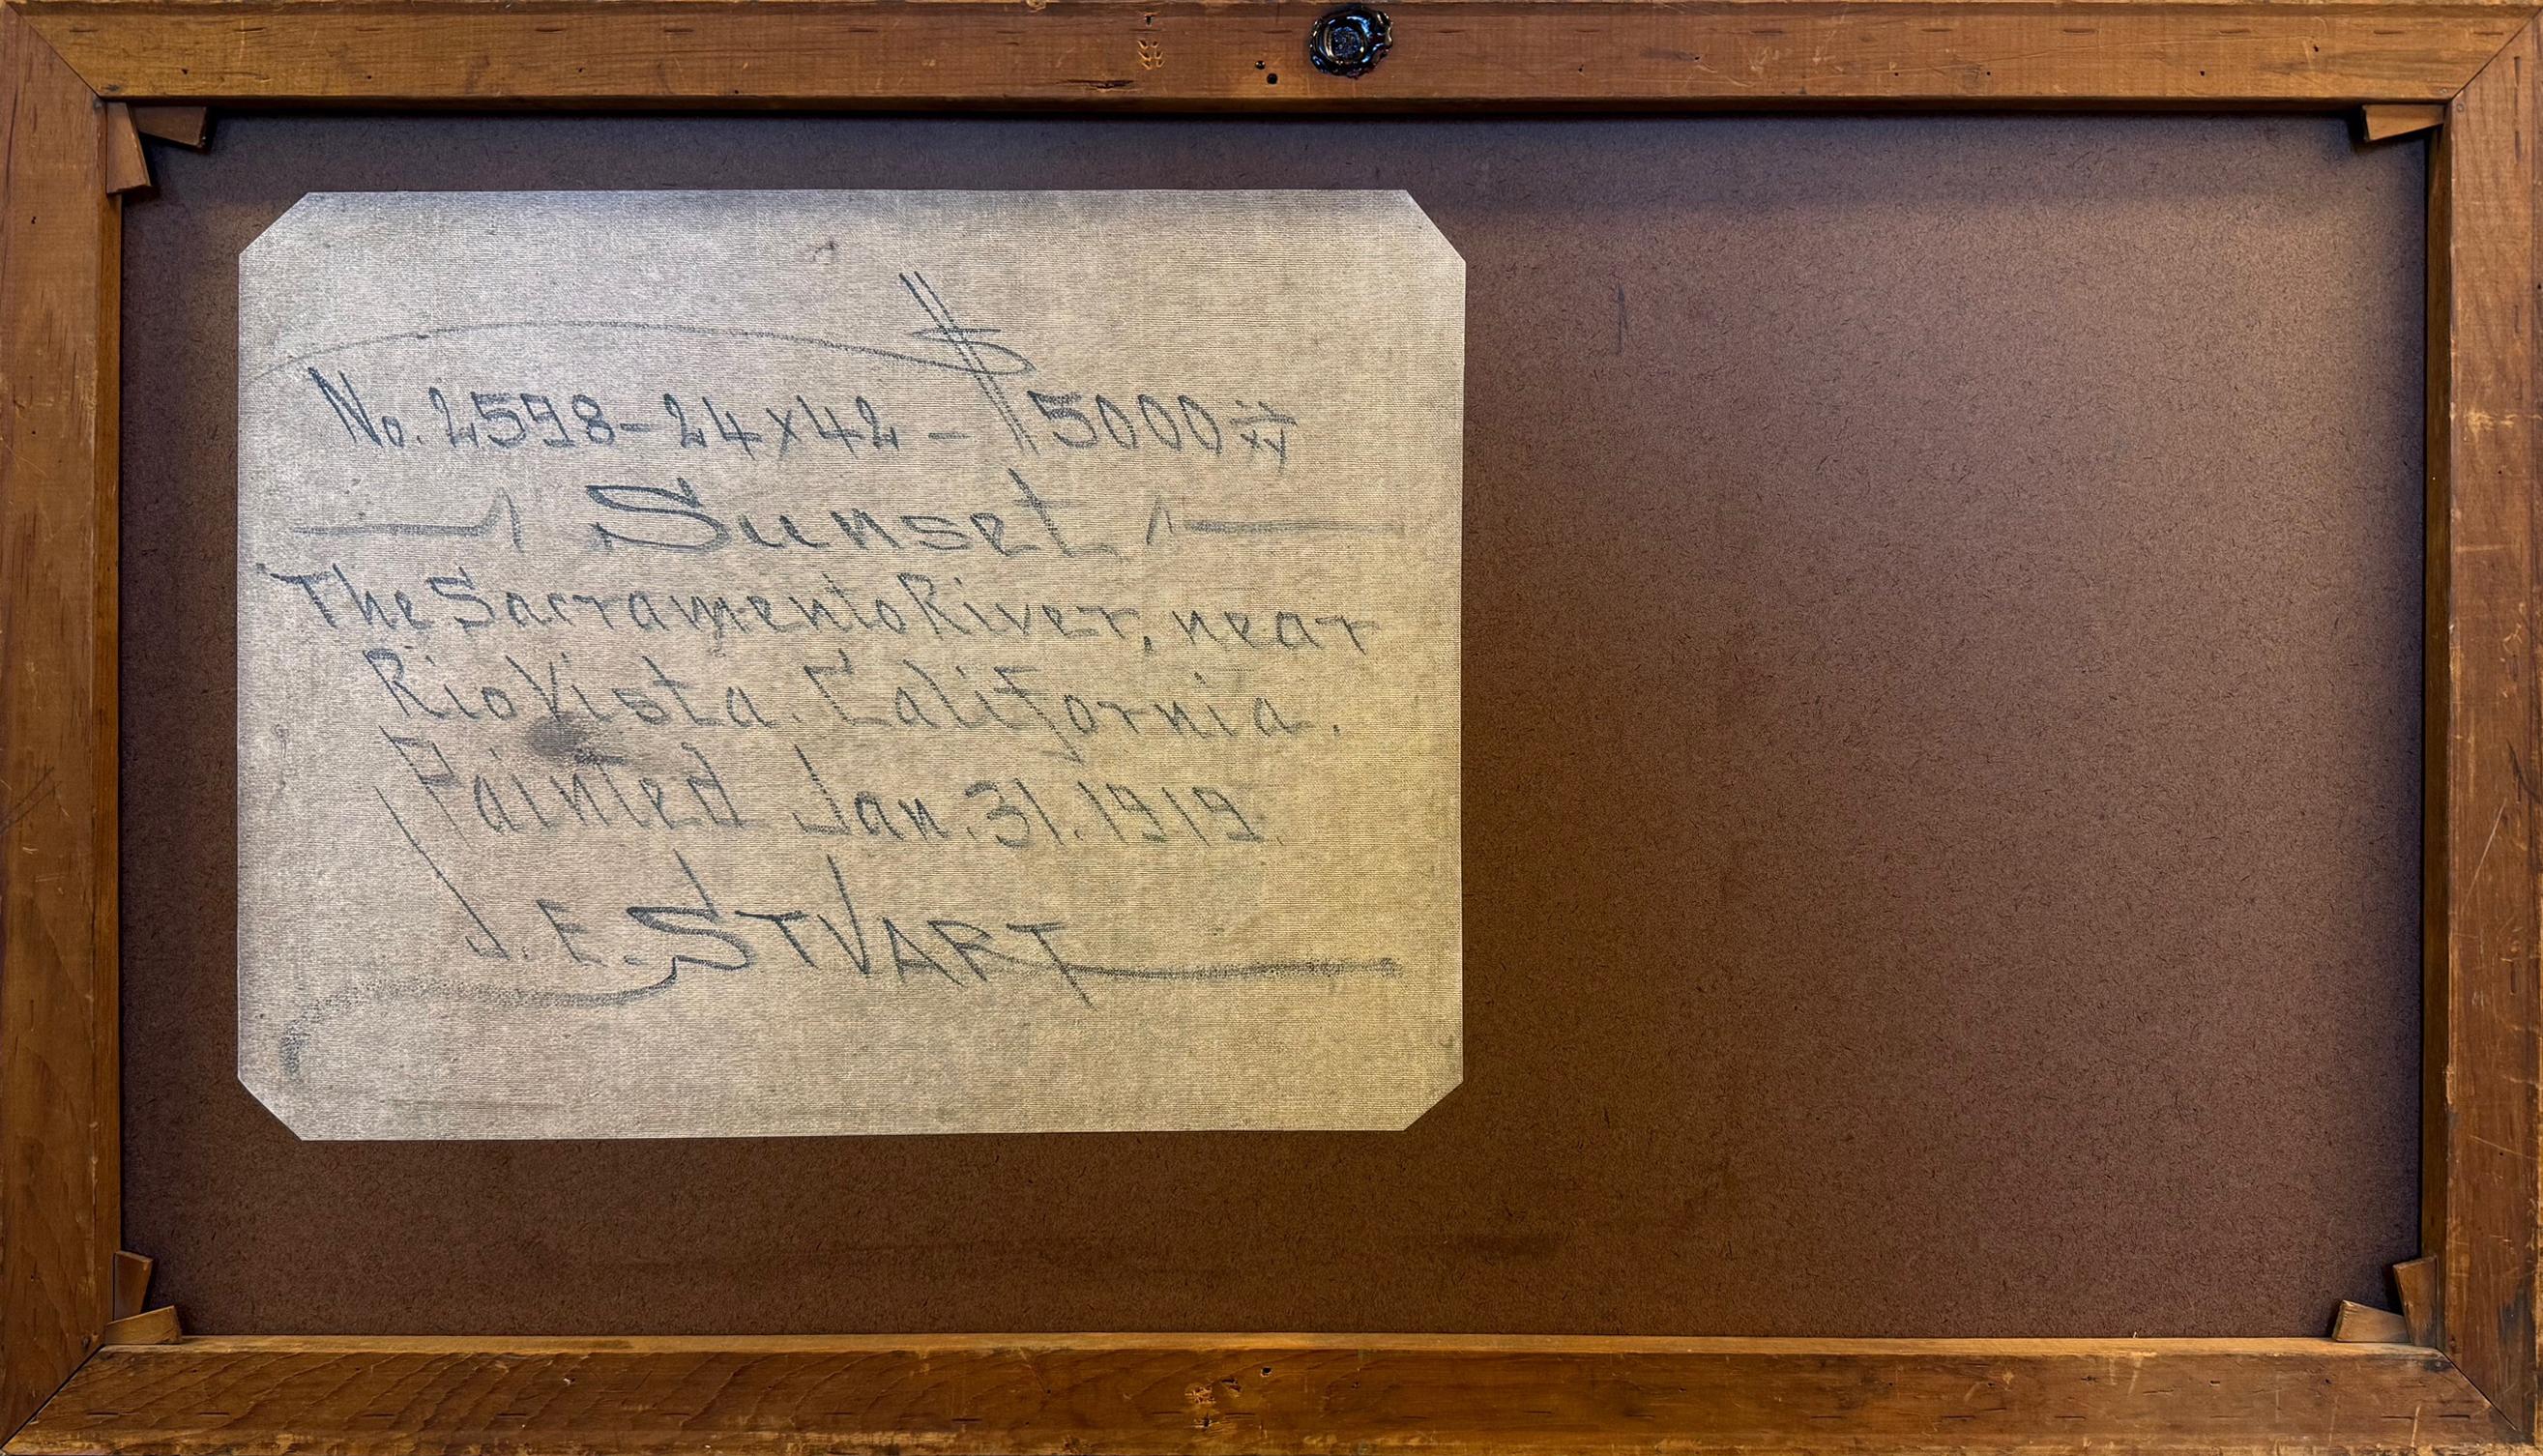 No. 2598 - 24x42 - $5000 xx
Sunset
The Sacramento River, near
Rio Vista. California.
Painted Jan. 31. 1919.
J. E. STVART